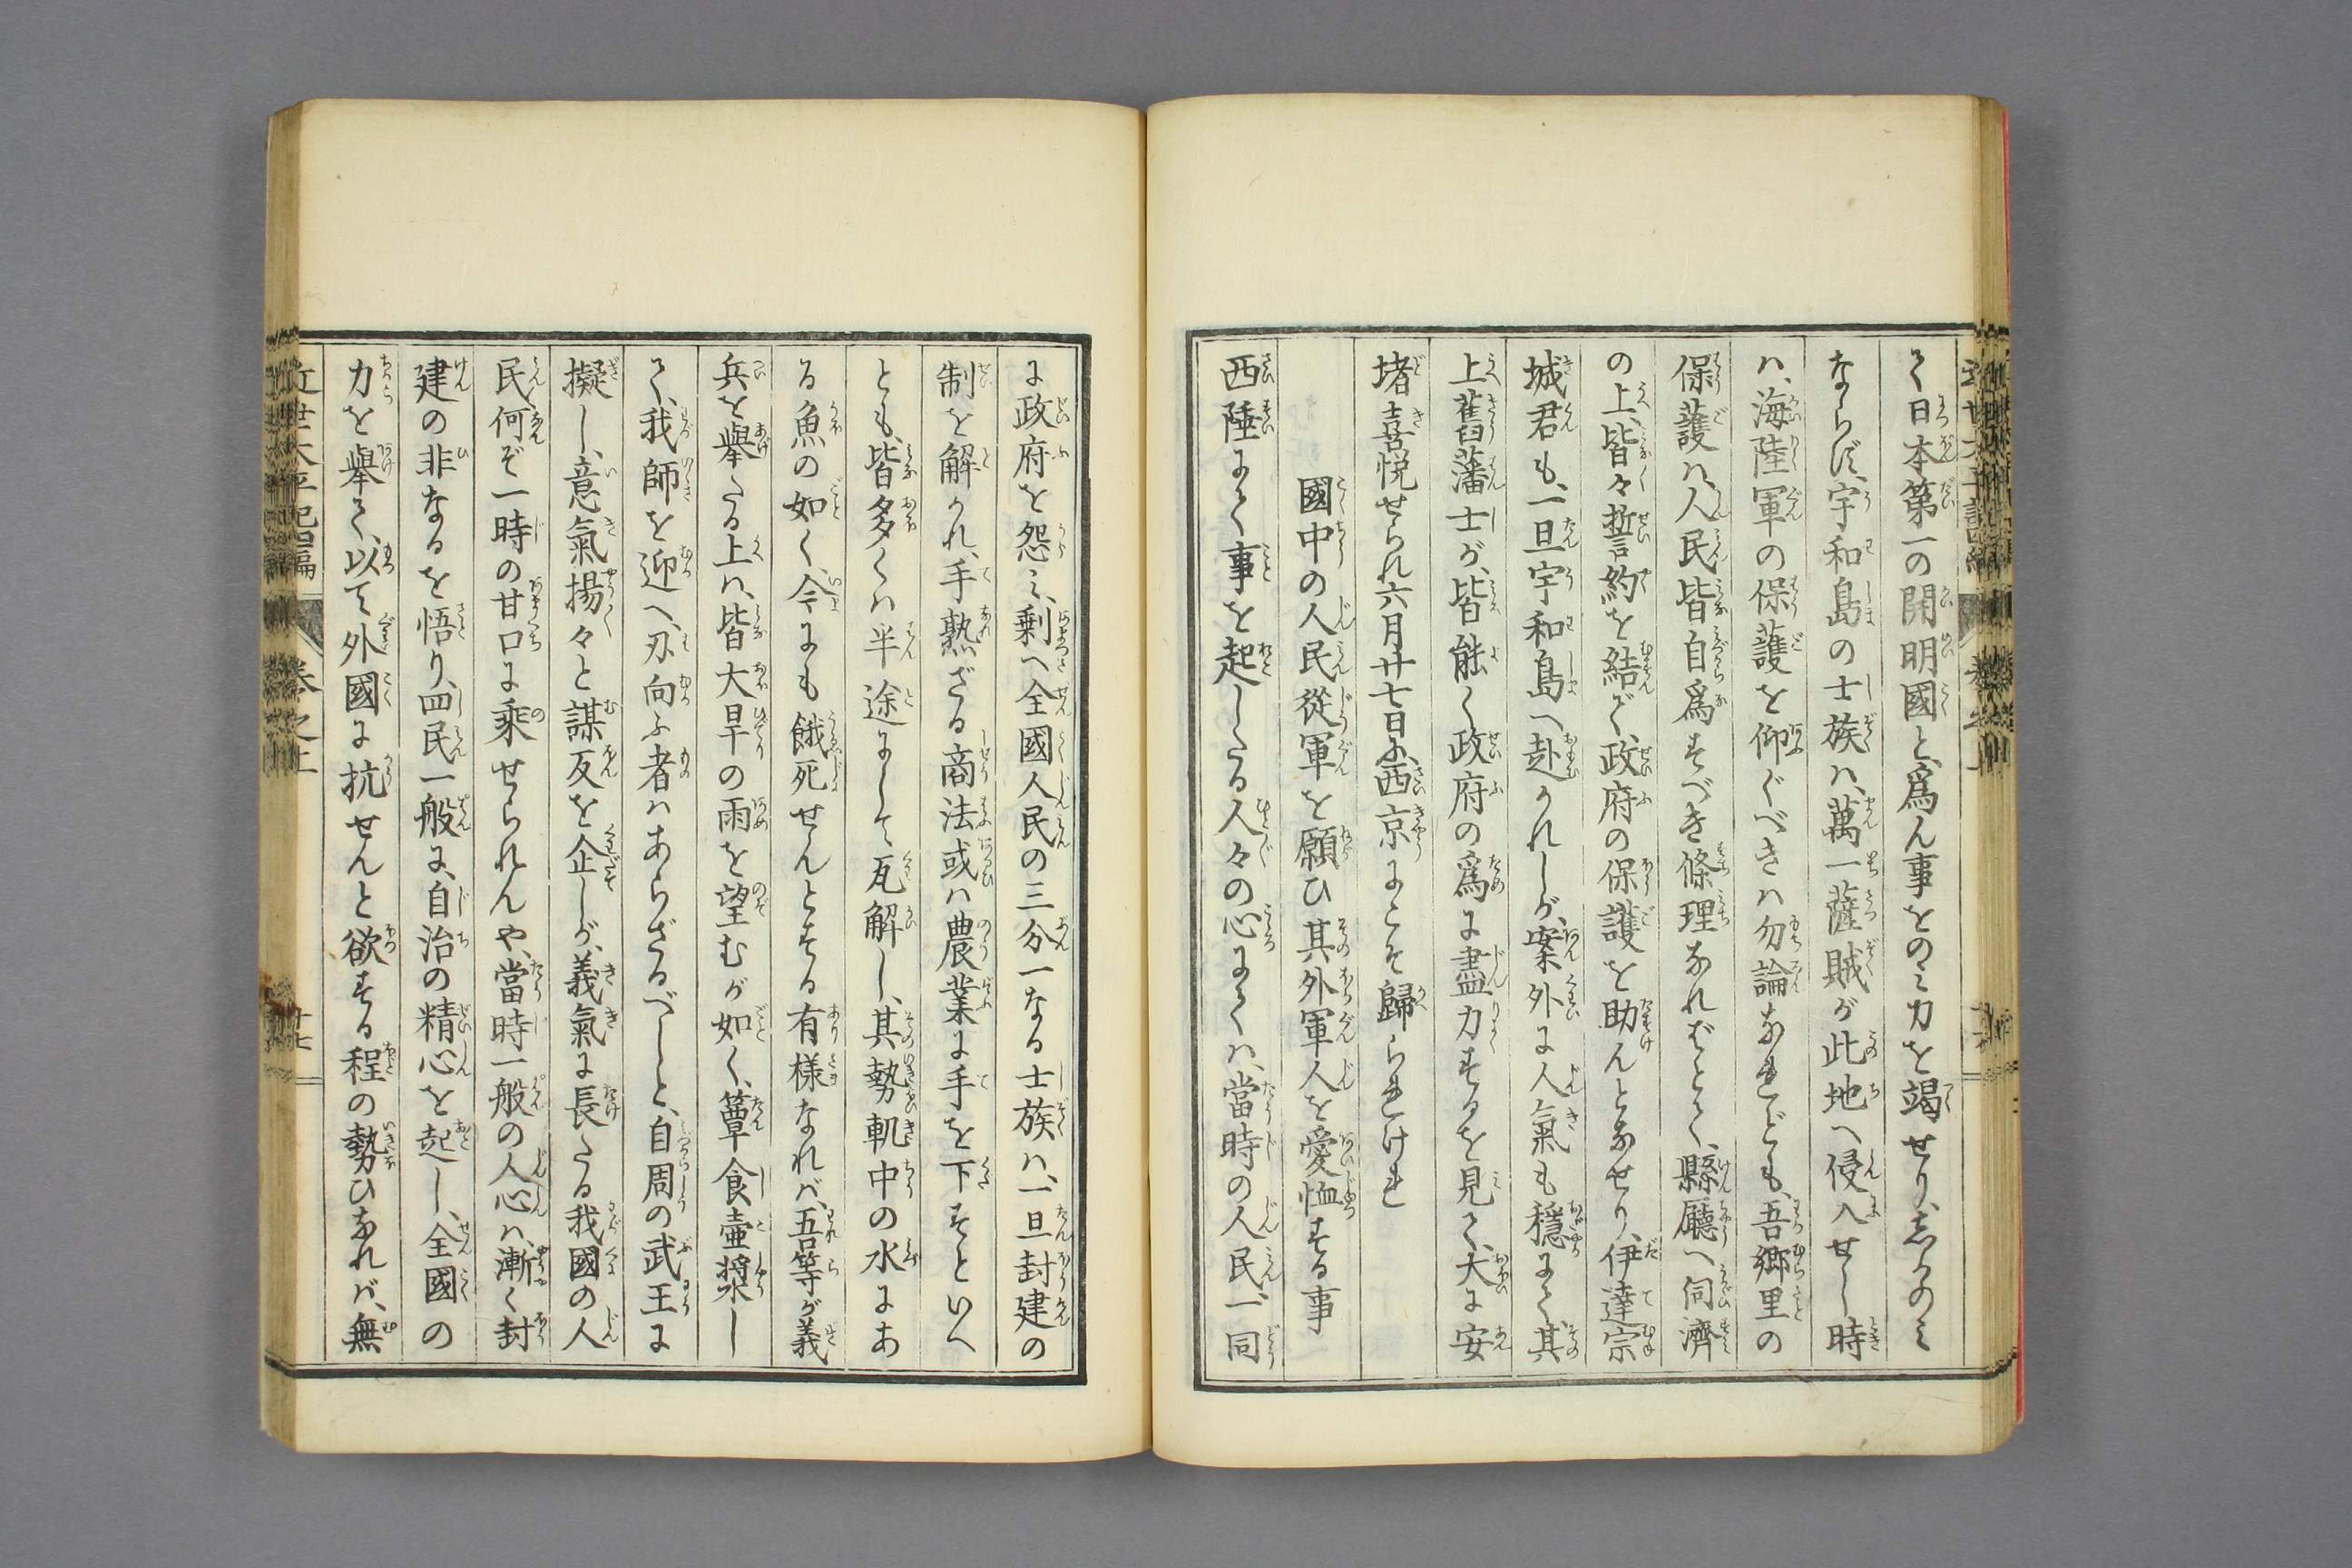 て日本第一の開明國と、爲ん事をのミ力を竭せり、志かのミ
ならず、宇和島の士族ハ、萬一薩賊が此地へ侵入せし時
ハ、海陸軍の保護を仰ぐべきハ勿論なれども、吾郷里の
保護ハ、人民皆自爲すべき條理なれバとて、縣廳へ伺濟
の上、皆々誓約を結び、政府の保護を助んとなせり、伊達宗
城君も、一旦宇和島へ赴かれしが、案外に人氣も穩にて、其
上舊藩士が、皆能く政府の爲に盡力するを見て、大に安
堵喜悦せられ六月廿七日に、西京にこそ歸られけれ
國中の人民從軍を願ひ其外軍人を愛恤する事
西陲にて事を起したる人々の心にてハ、當時の人民、一同
に政府を怨ミ、剩へ全國人民の三分一なる士族ハ、一旦封建の
制を解かれ、手熟ざる商法或ハ農業に手を下すといへ
とも、皆多くハ半途にして瓦解し、其勢軌中の水にあ
る魚の如く、今にも餓死せんとする有樣なれバ、吾等が義
兵を擧たる上ハ、皆大旱の雨を望むが如く、簞食壺漿し
て、我師を迎へ、刃向ふ者ハあらざるべしと、自周の武王に
擬し、意氣揚々と謀反を企しが、義氣に長たる我國の人
民、何ぞ一時の甘口に乘せられんや、當時一般の人心ハ、漸く封
建の非なるを悟り、四民一般に、自治の精心を起し、全國の
力を擧て、以て外國に抗せんと欲する程の勢ひなれバ、無
近世太平記四編　卷之上　廿七